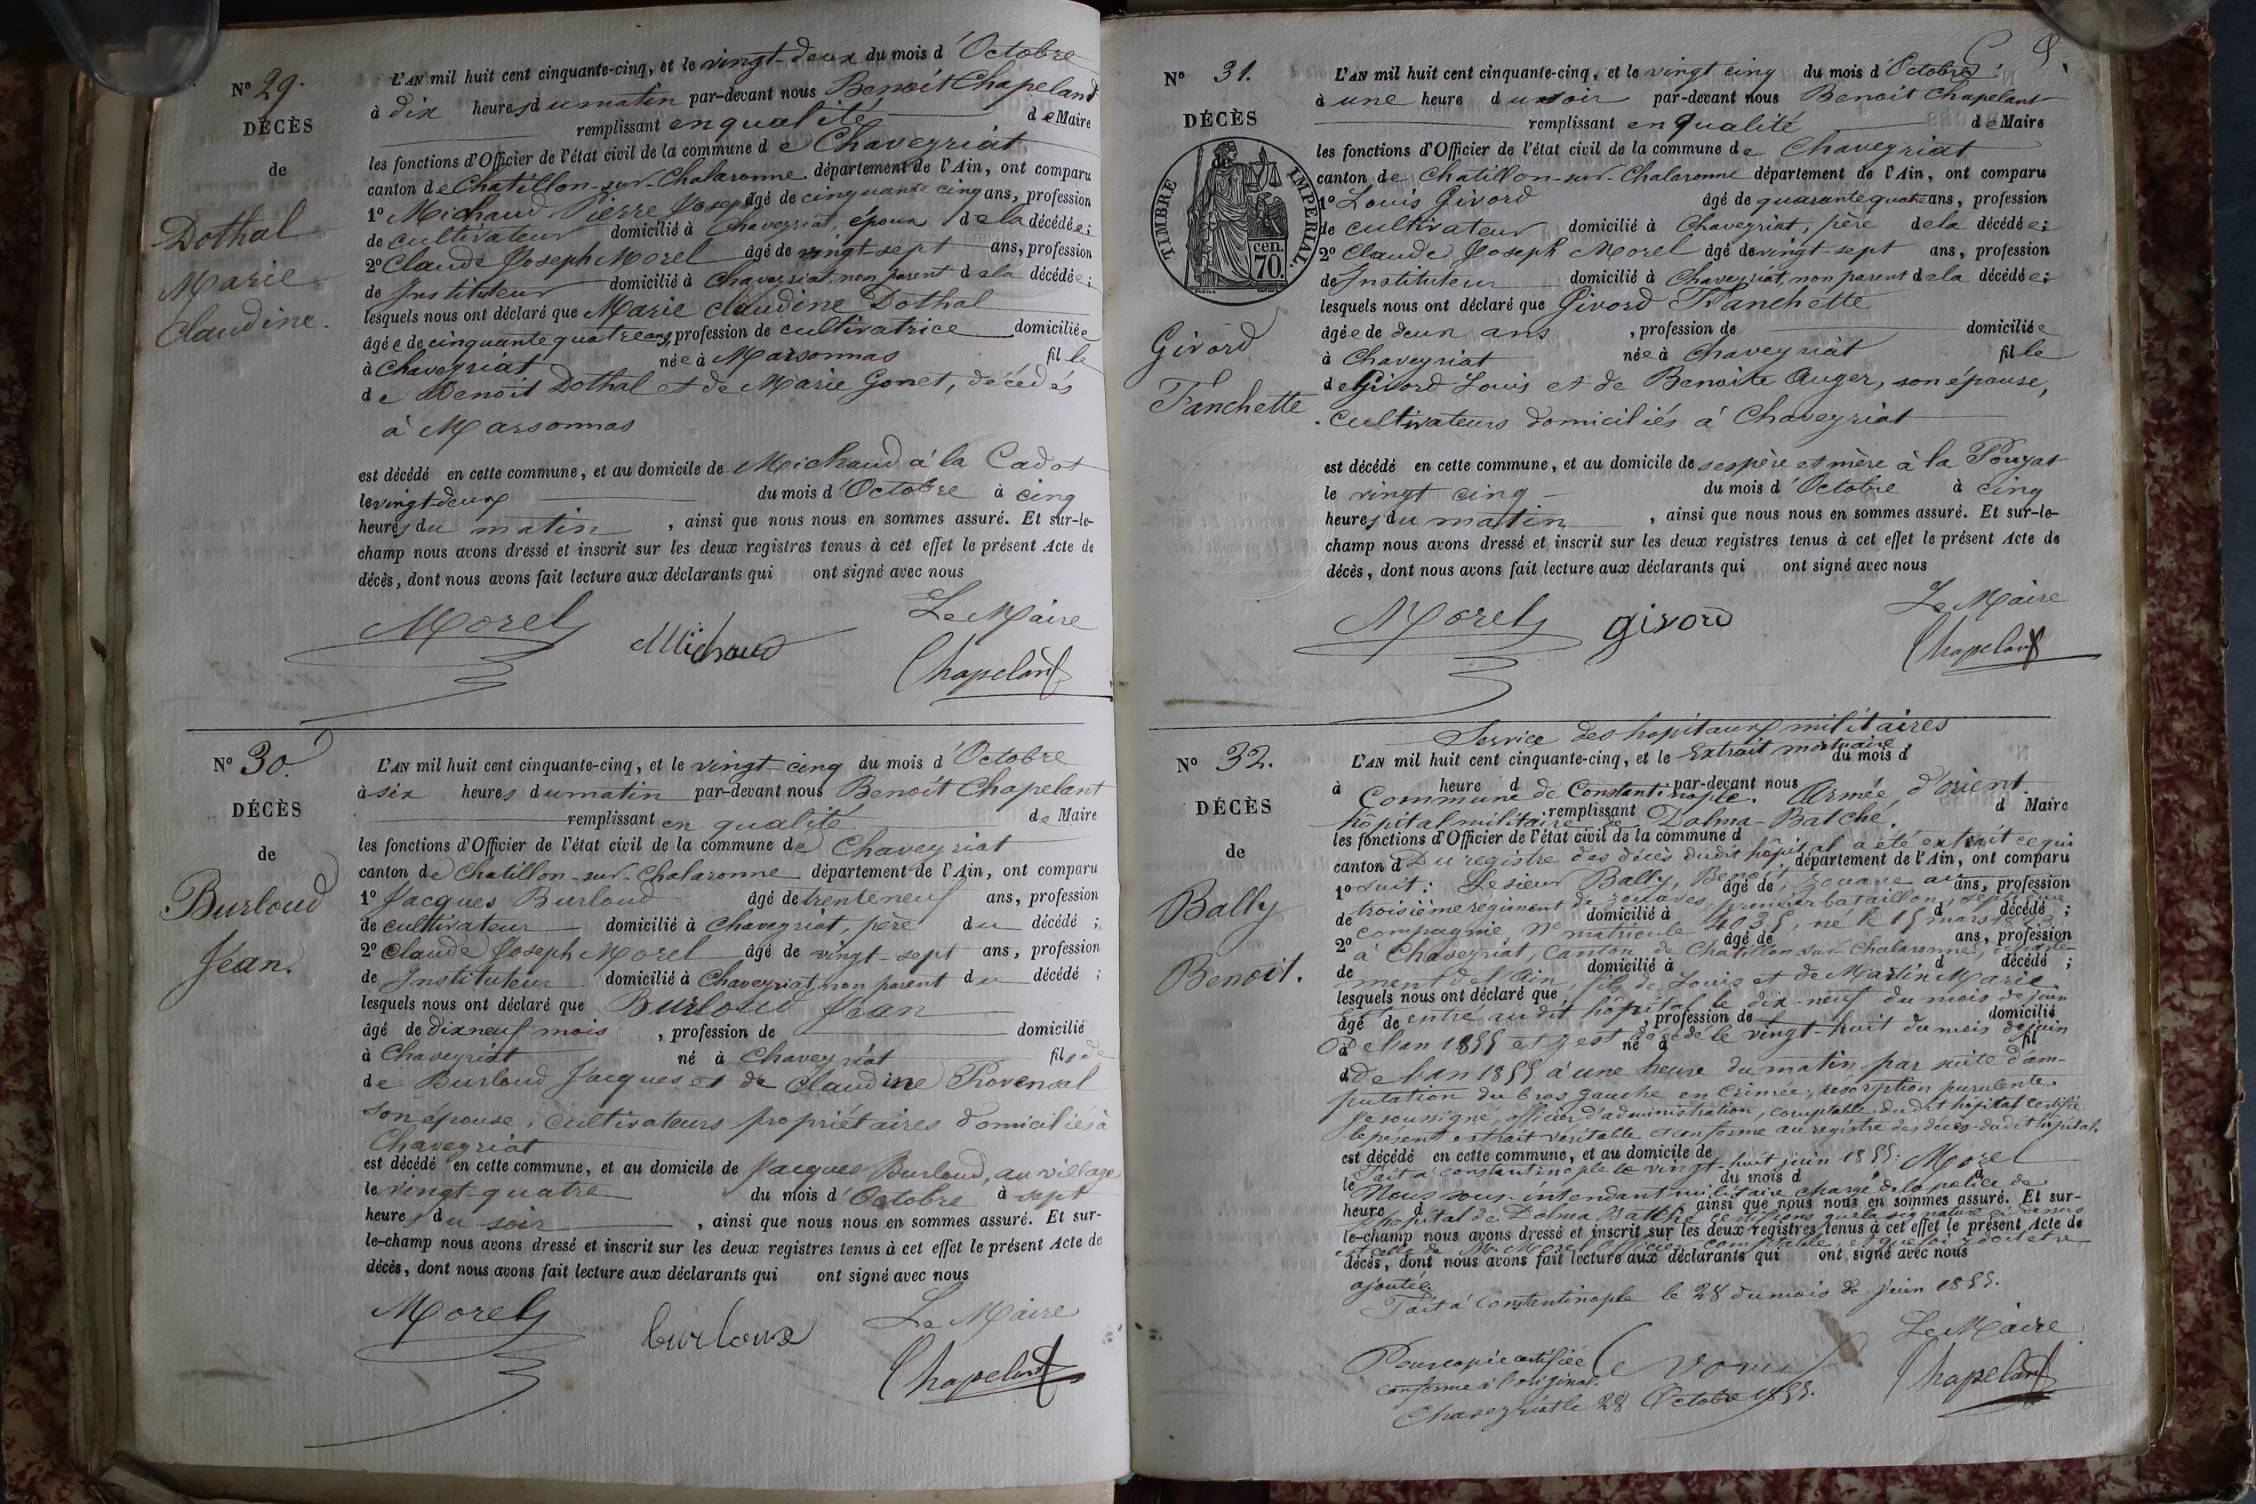 N° 29.
DÉCÈS
de
Dothal
Marie
Claudine.
L'AN mil huit cent cinquante-cinq, et le vingt-deux du mois d'Octobre
à dix heures du matin par-devant nous Benoît Chapeland
remplissant en qualité de Maire
les fonctions d'Officier de l'état civil de la commune de Chaveyriat
canton de Chatillon-sur-Chalaronne département de l'Ain, ont comparu
1° Michaud Pierre Joseph âgé de cinquante cinq ans, profession
de cultivateur domicilié à Chaveyriat, époux de la décédée;
2° Claude Joseph Morel âgé de vingt-sept ans, profession
de Instituteur domicilié à Chaveyriat, non parent de la décédée;
lesquels nous ont déclaré que Marie Claudine Dothal
âgée de cinquante quatre ans, profession de cultivatrice domiciliée
à Chaveyriat née à Marsonnas fille
de Benoit Dothal et de Marie Gonet, décédés
à Marsonnas
est décédé en cette commune, et au domicile de Michaud à la Cadot
le vingt-deux du mois d'Octobre à cinq
heures du matin, ainsi que nous nous en sommes assuré. Et sur-le-
champ nous avons dressé et inscrit sur les deux registres tenus à cet effet le présent Acte de
décès, dont nous avons fait lecture aux déclarants qui ont signé avec nous
Morel Michaud Le Maire
Chapeland
N° 30.
DÉCÈS
de
Burloud
Jean.
L'AN mil huit cent cinquante-cinq, et le vingt-cinq du mois d'Octobre
à six heures du matin par-devant nous Benoît Chapelant
remplissant en qualité de Maire
les fonctions d'Officier de l'état civil de la commune de Chaveyriat
canton de Chatillon-sur-Chalaronne département de l'Ain, ont comparu
1° Jacques Burloud âgé de trente neuf ans, profession
de cultivateur domicilié à Chaveyriat, père du décédé;
2° Claude Joseph Morel âgé de vingt-sept ans, profession
de Instituteur domicilié à Chaveyriat, non parent du décédé;
lesquels nous ont déclaré que Burloud Jean
âgé de dix neuf mois, profession de domicilié
à Chaveyriat né à Chaveyriat fils de
de Burloud Jacques et de Claudine Provensal
son épouse, cultivateurs propriétaires domiciliés à
Chaveyriat
est décédé en cette commune, et au domicile de Jacques Burloud, au village
le vingt-quatre du mois d'Octobre à sept
heures du soir, ainsi que nous nous en sommes assuré. Et sur-
le-champ nous avons dressé et inscrit sur les deux registres tenus à cet effet le présent Acte de
décès, dont nous avons fait lecture aux déclarants qui ont signé avec nous
Morel burloud Le Maire
Chapelant
N° 31.
DÉCÈS
TIMBRE IMPERIAL.
cen.
70.
Givord
Fanchette
L'AN mil huit cent cinquante-cinq, et le vingt cinq du mois d'Octobre
à une heure du soir par-devant nous Benoit Chapelant
remplissant en qualité de Maire
les fonctions d'Officier de l'état civil de la commune de Chaveyriat
canton de Chatillon-sur-Chalaronne département de l'Ain, ont comparu
1° Louis Givord âgé de quarante quatre ans, profession
de cultivateur domicilié à Chaveyriat, père de la décédée;
2° Claude Joseph Morel âgé de vingt-sept ans, profession
de Instituteur domicilié à Chaveyriat, non parent de la décédée;
lesquels nous ont déclaré que Givord Fanchette
âgée de deux ans, profession de domiciliée
à Chaveyriat née à Chaveyriat fille
de Givord Louis et de Benoite Auger, son épouse,
cultivateurs domiciliés à Chaveyriat
est décédé en cette commune, et au domicile de ses père et mère à la Pouyat
le vingt cinq du mois d'Octobre à cinq
heures du matin, ainsi que nous nous en sommes assuré. Et sur-le-
champ nous avons dressé et inscrit sur les deux registres tenus à cet effet le présent Acte de
décès, dont nous avons fait lecture aux déclarants qui ont signé avec nous
Morel givord Le Maire
Chapelant
N° 32.
DÉCÈS
de
Bally
Benoit.
Service des hopitaux militaires
L'AN mil huit cent cinquante-cinq, et le Extrait mortuaire du mois d
à heure d par-devant nous
Commune de Constantinople. Armée d'orient.
remplissant d Maire
hôpital militaire de Dolma-Batché.
les fonctions d'Officier de l'état civil de la commune d
Du registre des décès dudit hôpital a été extrait ce qui
canton d département de l'Ain, ont comparu
suit: Le sieur Bally, Benoit, zouave au
1° âgé de ans, profession
troisième régiment de zouaves, premier bataillon, septième
de domicilié à d décédé;
compagnie n° matricule 4035, né le 15 mars
2° âgé de ans, profession
à Chaveyriat, canton de Chatillon-sur-Chalaronne, départe-
de domicilié à d décédé;
ment de l'Ain, fils de Louis et de Martin Marie
lesquels nous ont déclaré que
entré audit hôpital le dix-neuf du mois de juin
âgé de, profession de domicilié
De l'an 1855 et y est décédé le vingt-huit du mois de juin
à né à fil
de l'an 1855 à une heure du matin par suite d'am-
d
putation du bras gauche en Crimée, résorption purulente.
Je soussigné, officier d'administration, comptable dudit hôpital certifie
le présent extrait véritable et conforme au registre des décès dudit hôpital.
est décédé en cette commune, et au domicile de
Fait à Constantinople le vingt-huit juin 1855: Morel
le du mois d à
Nous sous-intendant militaire chargé de la police de
heure d, ainsi que nous nous en sommes assuré. Et sur-
l'hopital de Dolma Batché certifions que la signature ci-dessus
le-champ nous avons dressé et inscrit sur les deux registres tenus à cet effet le présent Acte de
est celle de Mr Morel officier comptable, et que foi y doit être
décès, dont nous avons fait lecture aux déclarants qui ont signé avec nous
ajoutée.
Fait à Constantinople le 28 du mois de juin 1855.
Pour copie certifiée Le Maire
conforme à l'original. Chapelant
Chaveyriat le 28 Octobre 1855.